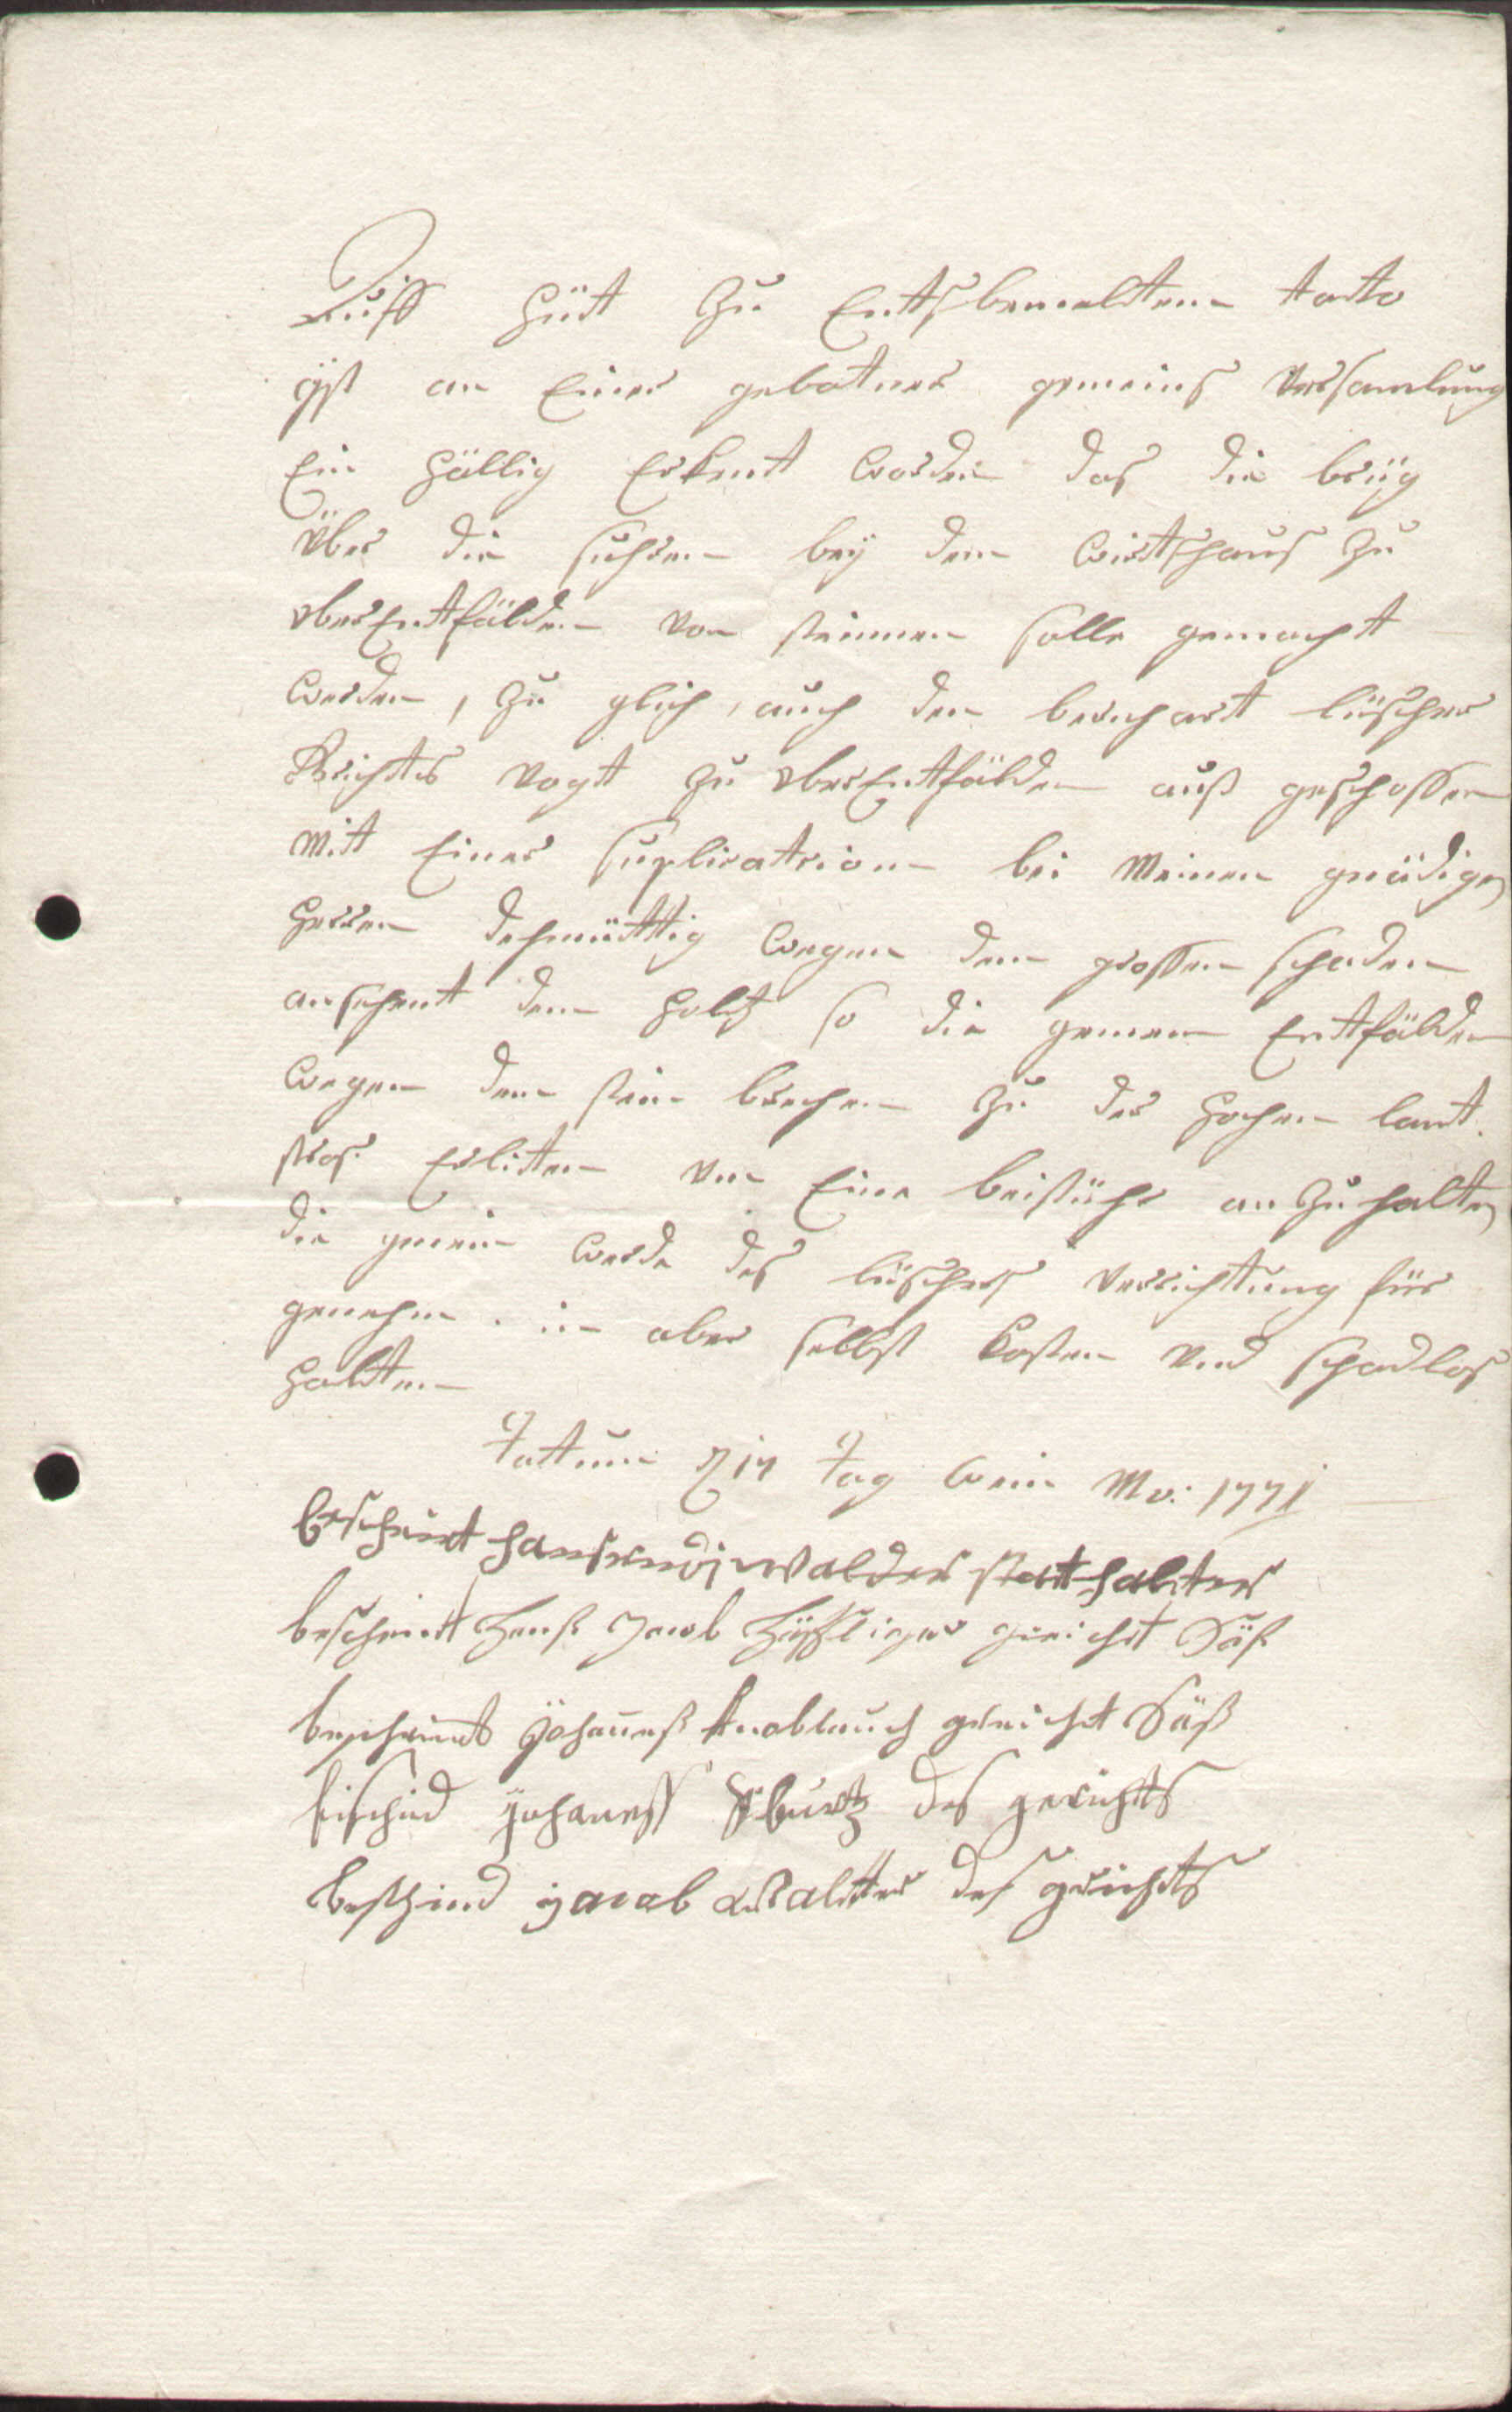 Auff Hüt Zu Entsbemelten tatto
ist an Einer gebotner gemeins versamlung
Ein hällig Erkent worden das die brüg
über die suhren bey dem wirtshaus Zu
oberEntfälden von steinnen solle gemacht
werden, Zu glich, auch den bernhart lüscher
Krichts vogt Zu oberEntfälden auß geschossen
mit Einer suplicatsion bei Meinen gnädigen
herren dehmüttig wegen dem grossen schaden
ansehent dem holtz so die gemein Entfälden
wegen dem stein brechen Zu der hochen lant
stras Erlitten um Eine beistühr an Zu halten
die gemein werde des lüschers verrichtung für
genehm. in aber selbst kosten und schadlos
halten
Tattum d 14 Tag wein Mo: 1771
bescheint hansruodi walder statthalter
bescheint Hanß Jacob Häffliger gericht Säß
bescheint Johaneß knoblauch gericht Säß
bischind johaness kburtz des gerichts
beschind jacob walitter des grichts